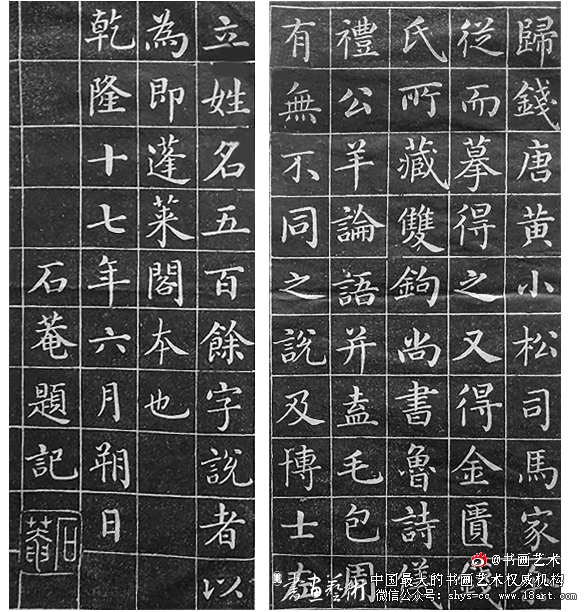 歸錢唐黃小松司馬家
從而摹得之又得金匱錢
氏所藏雙鉤尚書魯詩儀
禮公羊論語并盍毛包周
有無不同之說及博士左
立姓名五百餘字說者以
為即蓬萊閣本也
乾隆十七年六月朔日
石菴題記
石菴
@书画艺术
中国最大的书画艺术权威机构
微信公众号：shys-cc www.18art.com